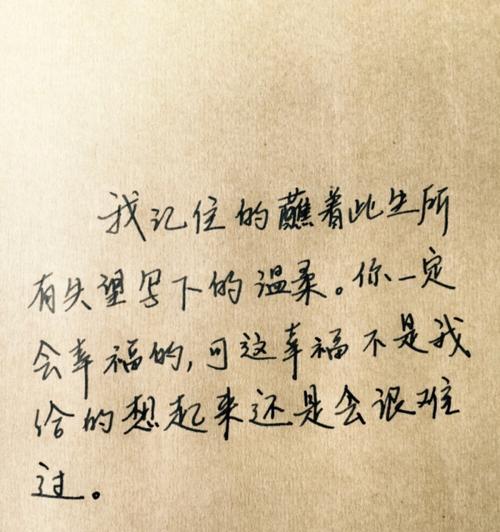 我记住的蘸着此生所
有失望写下的温柔。你一定
会幸福的,可这幸福不是我
给的想起来还是会很难
过。